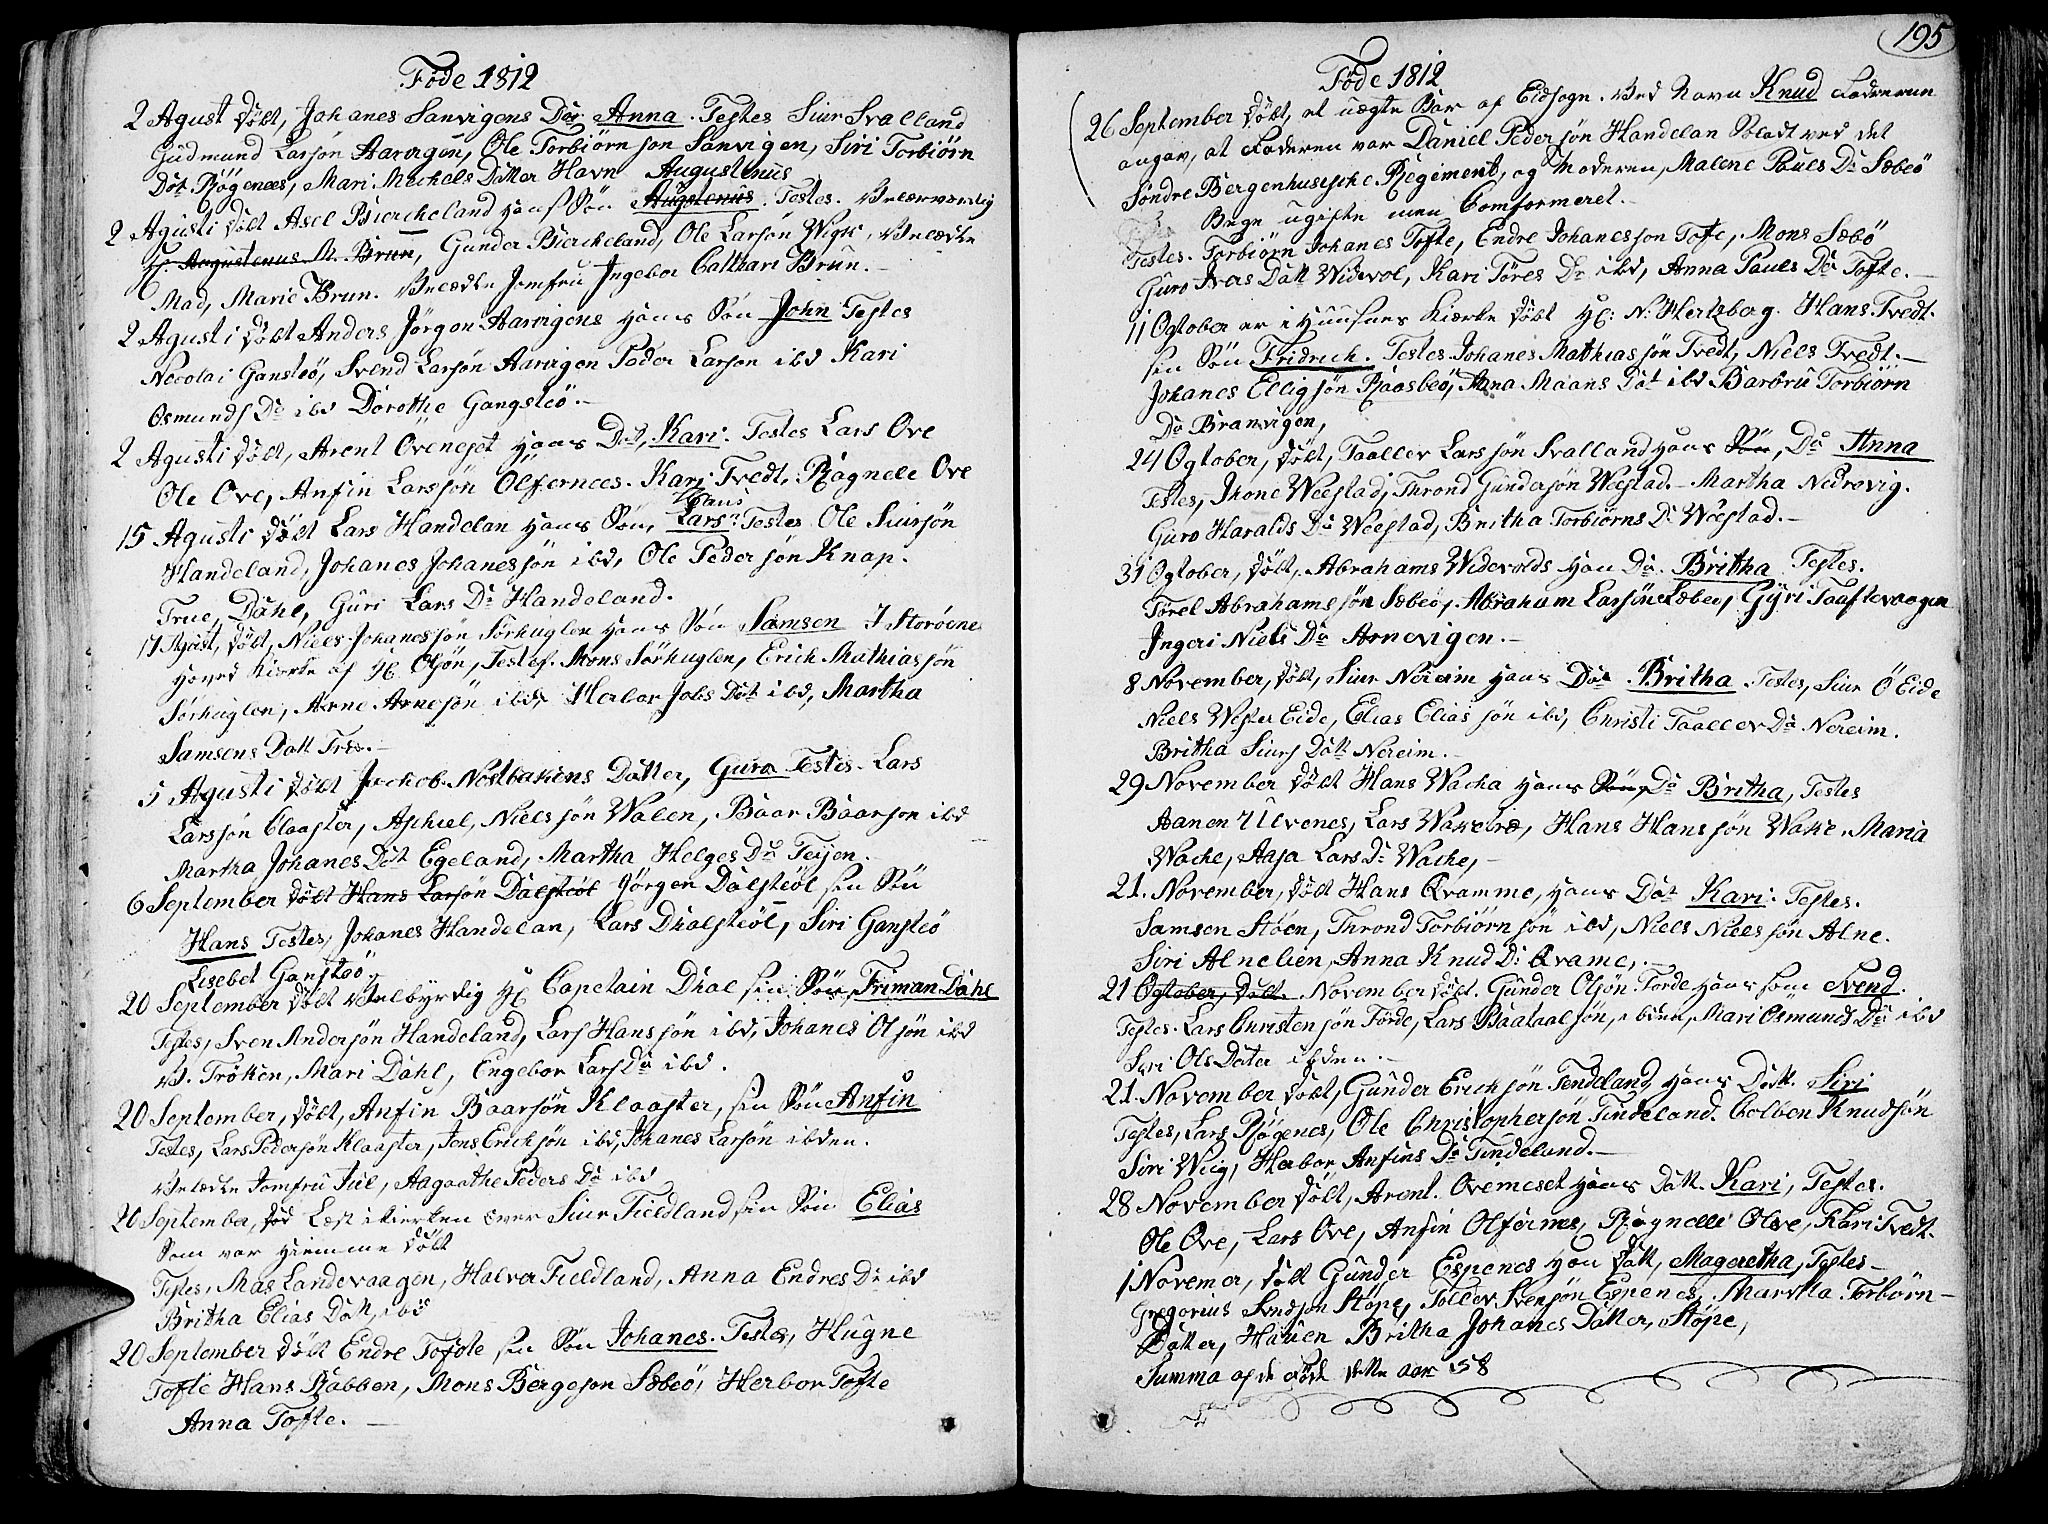 Føde 1812
2 Agust døbt, Johanes Sanvigens Dår Anna. Testes Siur Svalland
Gudmund Larsøn Aarvigen, Ole Torbiørn søn Sanvigen, Siri Torbiørn
Dót Røgenæs, Mari Michels Datter Havn Augustenus
2 Agusti døbt Asel Bierckeland hans Søn Augstenus. Testes. Velærværdig
H. Augustenus M. Brun, Gunder Bierckeland, Ole Larsøn Wiik, Velædle
Mad, Marie Brun. Velædle Jomfru Ingebor Cathari Brun.
2 Agusti døbt Anders Jørgon Aarvigens hans Søn John Testes
Necolai Gansteø, Svend Larsøn Aarvigen Peder Larsøn ibd Kari
Osmunds Dr ibd Dorothe Gangsteö.
2 Agusti døbt, Arent Öveneset hans Dot, Kari. Testes Lars Ove
Ole Ove, Anfin Larssøn Olfernees. Kari Tvedt, Ragnele Ove
Hans
15 Agusti døbt Lars Handelan hans Søn, Lars. Testes Ole Siursøn
Handeland, Johanes Johanessøn ibd, Ole Peder søn Knap.
Frue, Dahl, Guri Lars Dr Handeland.
17 Agust, døbt, Niels Johanessøn Sörhuglen hans Søn Samsen I Storöens
Hoved Kierke af H Olsøn, Testes. Mons Sörhuglen, Erich Mathiassøn
Sørhuglen, Arne Arnesøn ibd, Herbor Jobs Dot ibd, Martha
Samsens Datt Træ.
5 Agusti døbt Jackob Nostbakens Datter, Guro Testes. Lars
Larssøn Claaster, Aphiel, Nielssøn Walen, Baar Baarsøn ibd
Martha Johanes Dot Egeland, Martha Helges Dr Teijen.
6 September døbt Hans Larsøn Dalsteöl Jørgen Dalsteöl sin Søn
Hans Testes, Johanes Handelan, Lars Dhalsteöl, Siri Gansteö
Lisebet Gansteö,
20 September døbt Velbyrdig H Capetain Dhal sin Søn, Friman Dahl
Testes, Sven Andersøn Handeland, Lars Hans søn ibd, Johanes Olsøn ibd
V. Frøken, Mari Dahl, Engebor Lars Dr ibd.
20 September, døbt, Anfin Baarsøn Klaaster, sin Søn Anfin
Testes, Lars Pedersøn Klaaster, Jens Erichsøn ibd, Johanes Larsøn ibden.
Velædle Jomfru Juel, Aagaathe Peders Dr ibd
20 September, død Læst i Kierken over Siur Fieldland sin Søn Elias
Som var Hiemme døbt
Testes, Mas Landevaagen, Halver Fieldland, Anna Endres Dr ibd
Britha Elias Datt, ibd
20 September døbt Endre Tofte sin Søn Johanes. Testes, Hugne
Tofte Hans Rabben, Mons Bergeson Sæbeö, Herbor Tofte
Anna Tofte.
195
Føde 1812
26 September døbt, et uægte Bar af Eidsogn. Ved Navn Knud Faderen
angav, at Faderen var Daniel Peder søn Handelan Soladt ved det
Søndre Bergenhusische Regiment, og Moderen, Malene Pouls Dr Sæbeö
Begge ugifte men Comformeret.
Testes. Torbiørn Johanes Tofte, Endre Johanessøn Tofte, Mons Sæbö
Guro Ivers Datt Widevol, Kari Töres Dr ibd, Anna Pauls Dr Tofte.
11 Ogtober er i Huusnes Kierke døbt H: N: Hertzberg. Hans Tvedt.
sin Søn Fridrich. Testes Johanes Mathias søn Tvedt, Niels Tvedt.
Johanes Ellig søn Raasbeö, Anna Maans Dot ibd Barbru Torbiörn
Dr Branvigen,
24 Ogtober, døbt, Taaller Larssøn Svalland hans Søn, Dr Anna
Testes, Jhone Weestad, Thrond Gundersøn Weestad. Martha Nedrevig.
Guro Haralds Dr Weestad, Britha Torbiørns Dr Weestad.
31 Ogtober, døbt, Abrahams Widevolds Han Dr. Britha Testes.
Törel Abrahamssøn Sæbeö, Abraham Larsøn Sæbeö, Gyri Taaftevaagen
Ingeri Niels Dr Arnevigen.
8 November, døbt, Siur Nereim hans Dot Britha Testes, Siur Ö Eide
Niels Wester Eide, Elias Elias søn ibd, Christi Taaller Dr Nereim.
Britha Siurs Datt Nereim.
29 November døbt Hans Wacha hans Søn, Dr Britha, Testes
Aanen Ulvenes, Lars Wakebræ, Hans Hans søn Wake. Maria
Wache, Aasa Lars Dr Wache,
21. November, døbt Hans Qvamme, hans Dot Kari. Testes.
Samsen Stöen, Thrond Torbiörn søn ibd, Niels Niels søn Alne.
Siri Alnelien, Anna Knud Dr Qvame,
21 Ogtober, døbt. November døbt. Gunder Olsøn Förde hans søn Svend.
Testes. Lars Christen søn Förde, Lars Baataal søn, ibden, Mari Osmunds Dr ibd
Siri Ols Dater ibden.
21. November døbt, Gunder Erichsøn Tendeland hans Datt. Siri
Testes, Lars Røgenes, Ole Christophersøn Tindeland. Colben Knudsøn
Siri Wiig, Herbor Anfins Dr Tindeland.
28 November døbt, Arent. Ovemeset hans Datt. Kari, Testes.
Ole Ove, Lars Ove, Anfin Olfernes, Ragnelle Olve, Kari Tvedt.
1 Novemer, døbt Gunder Espenes Han Datt, Mageretha, Testes
Gregorius Svndsøn Støpe, Toller Svensøn Espenes, Martha Torbörn
Datter, Hauen Britha Johanes Datter, Støpe,
Summa af de Føde dette aar 158